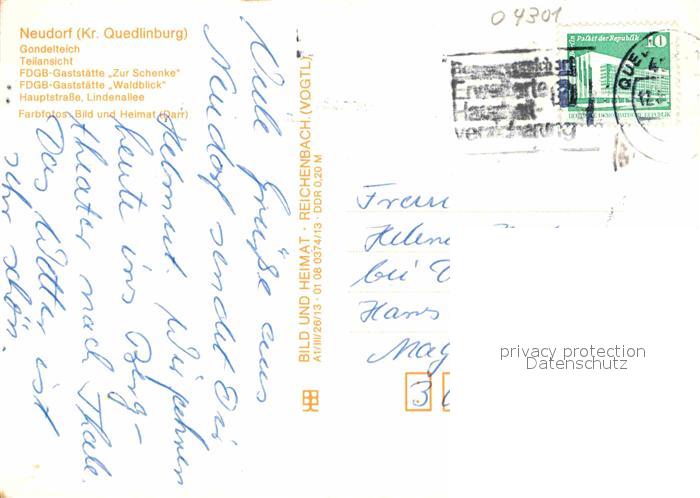 04301
Neudorf (Kr. Quedlinburg)
Gondelteich
Teilansicht
FDGB-Gaststätte „Zur Schenke"
FDGB-Gaststätte „Waldblick"
Hauptstraße, Lindenallee
Farbfotos: Bild und Heimat (Darr)
Viele Grüße aus
Neudorf sendet Dir
Helmut. Wir fahren
heute ins Berg-
theater nach Thale.
Das Wetter ist
sehr schön.
BILD UND HEIMAT · REICHENBACH (VOGTL)
A1/III/26/13 · 01 08 0374/13 · DDR 0,20 M
Erweiterte
Haushalt-
versicherung
Palast der Republik
10
QUE
Frau
Helene
bei
Hans
Mag
3
privacy protection
Datenschutz